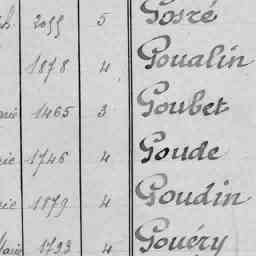 ph. 2055 5 Gosré
1878 4 Goualin
arie 1465 3 Goubet
rie 1746 4 Goude
rie 1879 4 Goudin
Marie 1793 4 Gouéry